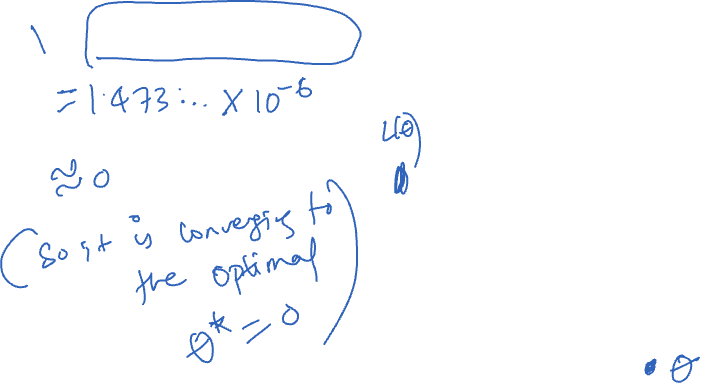 = 1.473... × 10⁻⁶
≈ 0
(so it is converging to
the optimal
θ* = 0)
L(θ)
θ